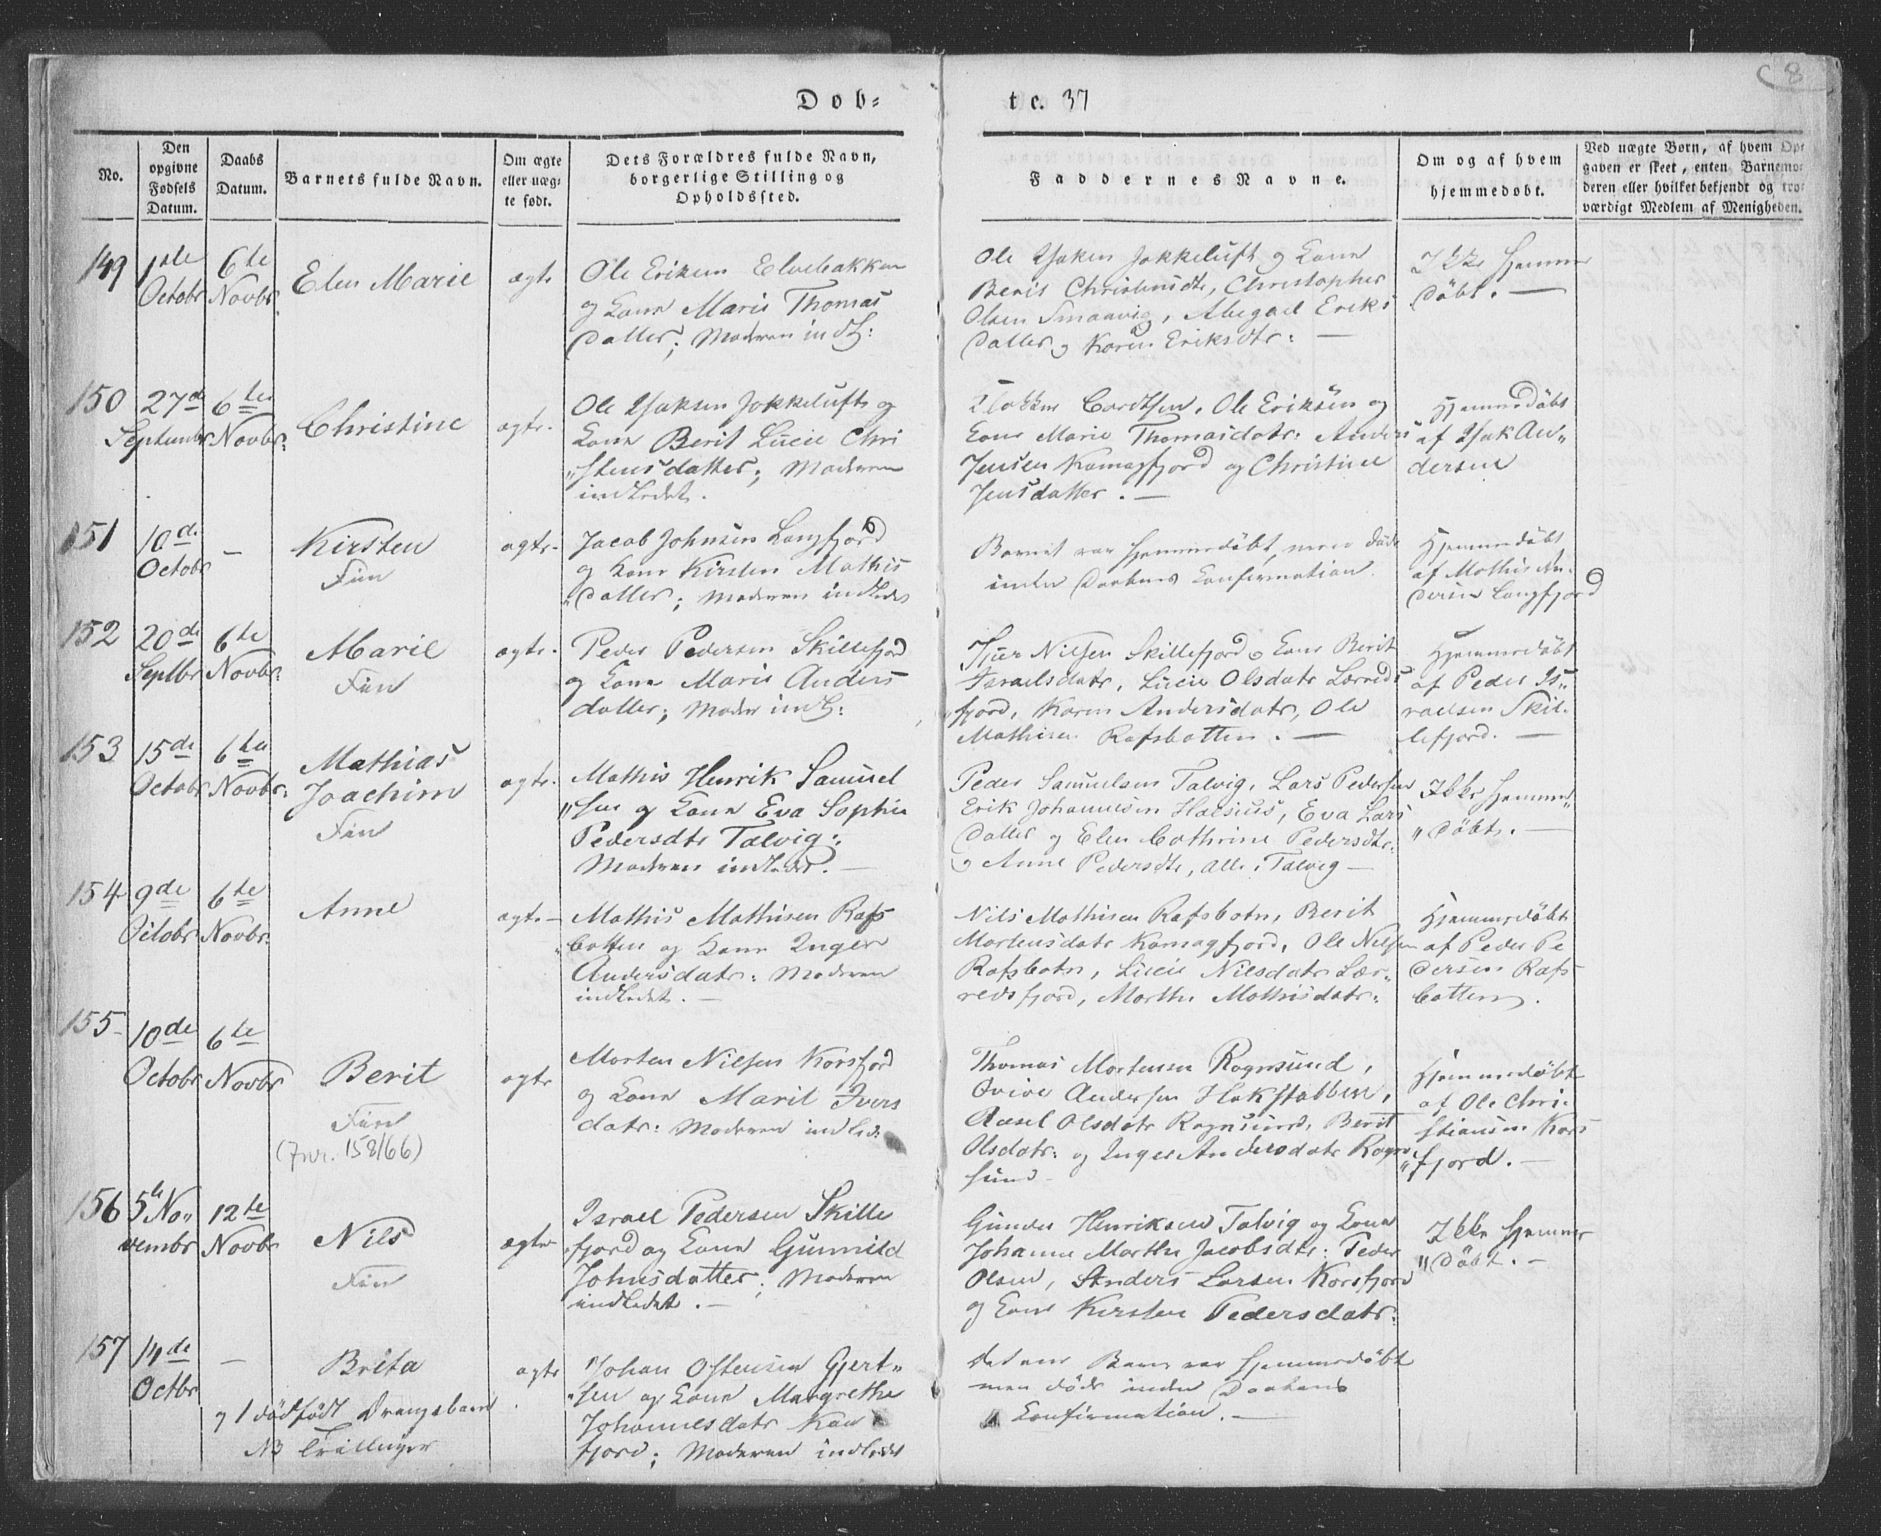 8
Dob-
te. 37
No.
Den opgivne Fødsels Datum.
Daabs Datum.
Barnets fulde Navn.
Om ægte eller uægte født.
Dets Forældres fulde Navn, borgerlige Stilling og Opholdssted.
Faddernes Navne.
Om og af hvem hjemmedøbt.
Ved uægte Børn, af hvem Op-
gaven er skeet, enten Barnemo-
deren eller hvilket bekjendt og tro-
værdigt Medlem af Menigheden.
149
1ste Octobr
6te Novbr.
Elen Marie
ægte
Ole Eriksen Elvebakken
og Kone Marie Thomas
datter; Moderen indl:
Ole Isaksen Jokkeluft og Kone
Berit Christensdtr, Christopher
Olsen Smaavig, Abegael Eriks
datter og Karen Eriksdtr. —
Ikke hjemme
døbt. —
150
27de Septembr
6te Novbr.
Christine
ægte.
Ole Isaksen Jokkeluft og
Kone Berit Lucie Chri
stensdatter; Moderen
indledet.
Ole Eriksen og
Kone Marie Thomasdatr. Anders
Jensen Komagfjord og Christine
Jensdatter. —
Hjemmedøbt
af Isak An„
dersen
151
10de Octobr
—
Kirsten
Fin
ægte.
Jacob Johnsen Langfjord
og Kone Kirsten Mathis
datter; Moderen indledet
Barnet var hjemmedøbt, men døde
inden Daabens Confirmation.
Hjemmedøbt
af Mathis An-
dersen Langfjord
152
20de Septbr
6te Novbr.
Marie
Fin
ægte.
Peder Pedersen Skillefjord
og Kone Marie Anders
datter; Moder indl:
Nilsen Skillefjord og Kone Berit
Israelsdatr, Lucie Olsdatr Lereds
fjord, Karen Andersdatr, Ole
Mathisen Rafsbotten. —
Hjemmedøbt
af Peder Is„
raelsen Skil-
lefjord. —
153
15de Octobr
6te Novbr.
Mathias
Joachim
Fin
ægte.
Mathis Henrik Samuel
„sen og Kone Eva Sophie
Pedersdtr Talvig.
Moderen indledet. —
Peder Samuelsen Talvig, Lars Pedersen
Erik Johannesen Halsius, Eva Lars
datter og Elen Cathrine Pedersdtr.
og Anne Pedersdtr, alle i Talvig —
Ikke hjemme„
„døbt. —
154
9de Octobr
6te Novbr.
Anne
ægte —
Mathis Mathisen Rafs
„botten og Kone Inger
Andersdatr. Moderen
indledet. —
Nils Mathisen Rafsbotn, Berit
Mortensdatr Komagfjord, Ole Nilsen
Rafsbotn, Lucie Nilsdatr Lær„
redsfjord, Marthe Mathisdatr.
Hjemmedøbt
af Peder Pe
dersen Rafs
botten.
155
10de Octobr
6te Novbr
Berit
Fin
(Fnr. 158/66)
ægte
Morten Nilsen Korsfjord
og Kone Marit Ivers
datr. Moderen indled:
Thomas Mortensen Rognsund,
Andersen Hakstabben,
Olsdatr Rognsund, Berit
Olsdatr. og Inger Andersdatr Rogn
sund
Hjemmedøbt
af Ole Chri-
stiansen Kors
„fjord. —
156
5te No„
vembr
12te Novbr
Nils
Fin
ægte
Israel Pedersen Skille
fjord og Kone Gunnild
Johnsdatter; Moderen
indledet. —
Gunder Henriksen Talvig og Kone
Johanne Marthe Jacobsdtr. Peder
Olsen, Anders Larsen Korsfjord
og Kone Kirsten Pedersdatr.
Ikke hjemme
„døbt. —
157
14de Octbr
—
Brita
og 1 dødfødt Drengebarn
NB Trillinger
ægte
Johan Ostensen Gjert„
„sen og Kone Margrethe
Johannesdatr
fjord; Moderen indledet
Det ene Barn var hjemmedøbt
men døde inden Daabens
Confirmation. —